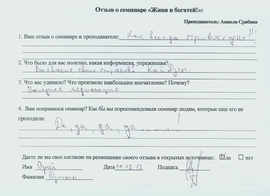 Отзыв о семинаре «Живи и богатей!»:
Преподаватель: Анжела Срибная
1. Ваш отзыв о семинаре и преподавателе: Как всегда превосходно!!!
2. Что было для вас полезно, какая информация, упражнения?
Выявление своих страхов.
3. Что вас удивило? Что произвело наибольшее впечатление? Почему?
медитация
4. Вам понравился семинар? Как бы вы порекомендовали семинар людям, которые еще его не проходили:
Да, да, да, да !
Даете ли вы свое согласие на размещение своего отзыва в открытых источниках: да нет
Имя Дата Подпись
Фамилия